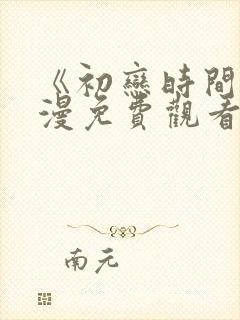 《初戀時間
漫免費觀看
南元